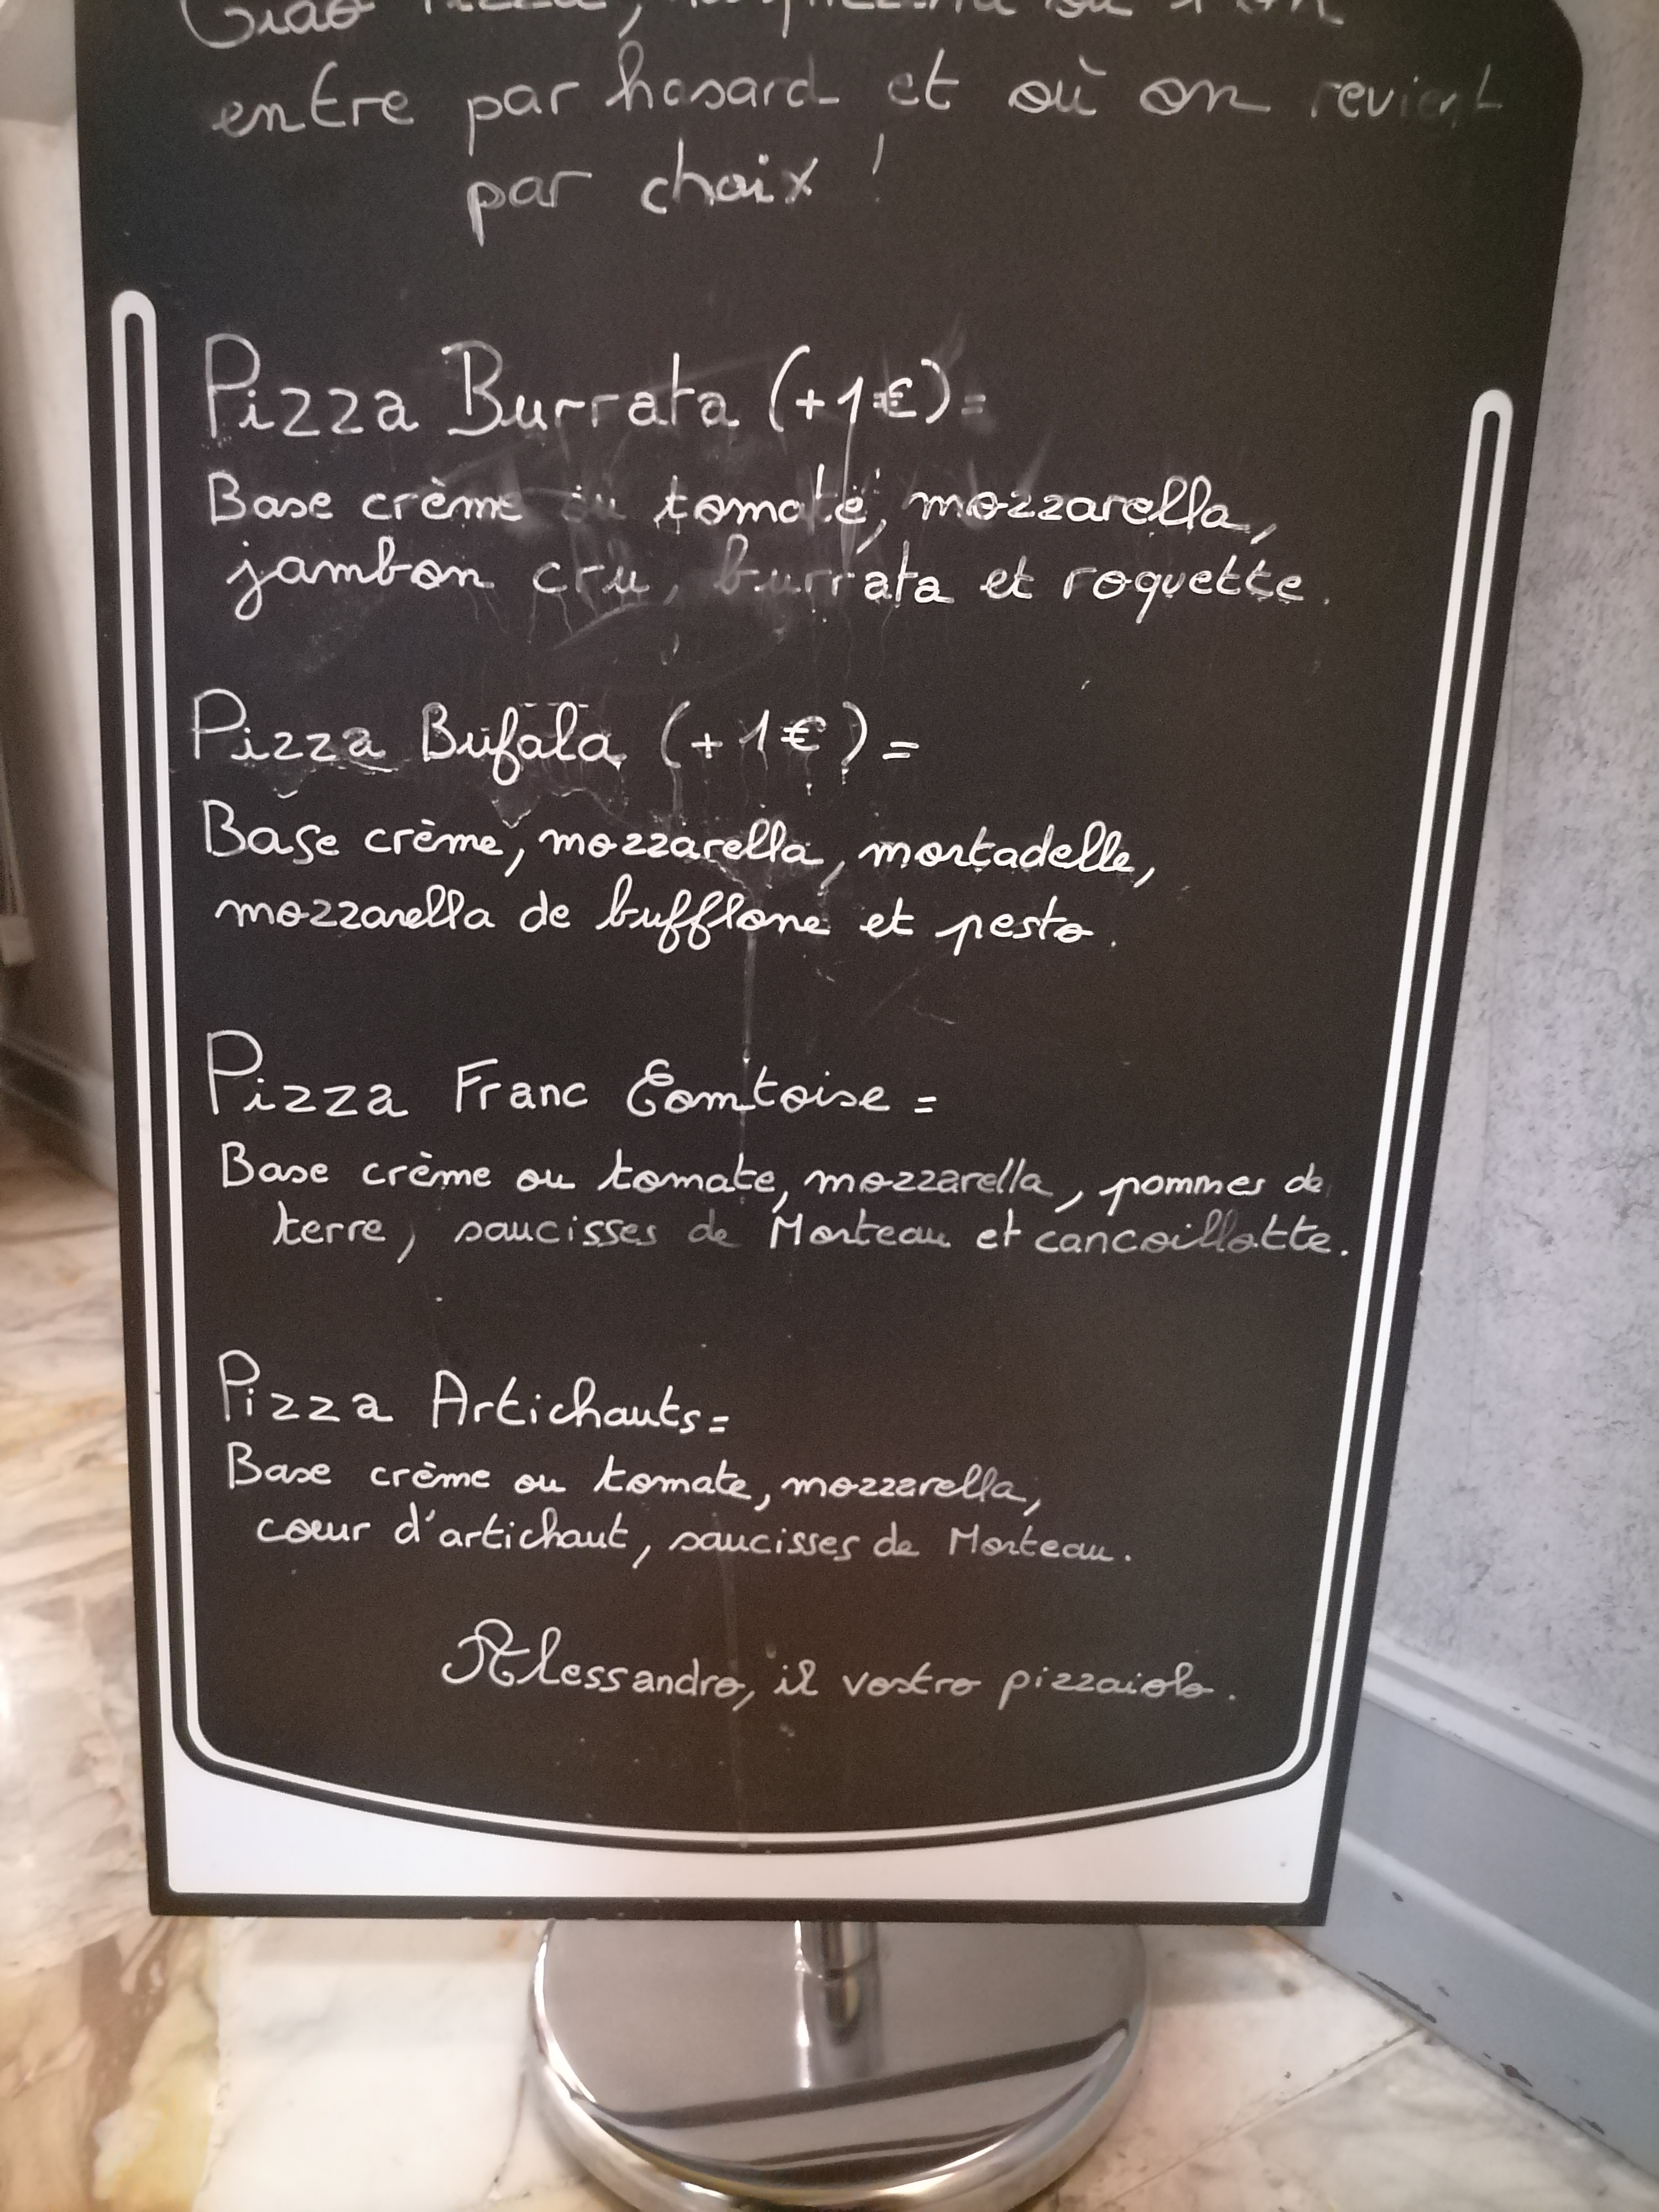 Ciao Pizza, la pizzeria où l'on
entre par hasard et où on revient
par choix !
Pizza Burrata (+1€)=
Base crème ou tomate, mozzarella,
jambon cru, burrata et roquette.
Pizza Bufala (+1€)=
Base crème, mozzarella, mortadelle,
mozzarella de bufflone et pesto.
Pizza Franc Comtoise =
Base crème ou tomate, mozzarella, pommes de
terre, saucisses de Morteau et cancoillotte.
Pizza Artichauts=
Base crème ou tomate, mozzarella,
cœur d'artichaut, saucisses de Morteau.
Alessandro, il vostro pizzaiolo.